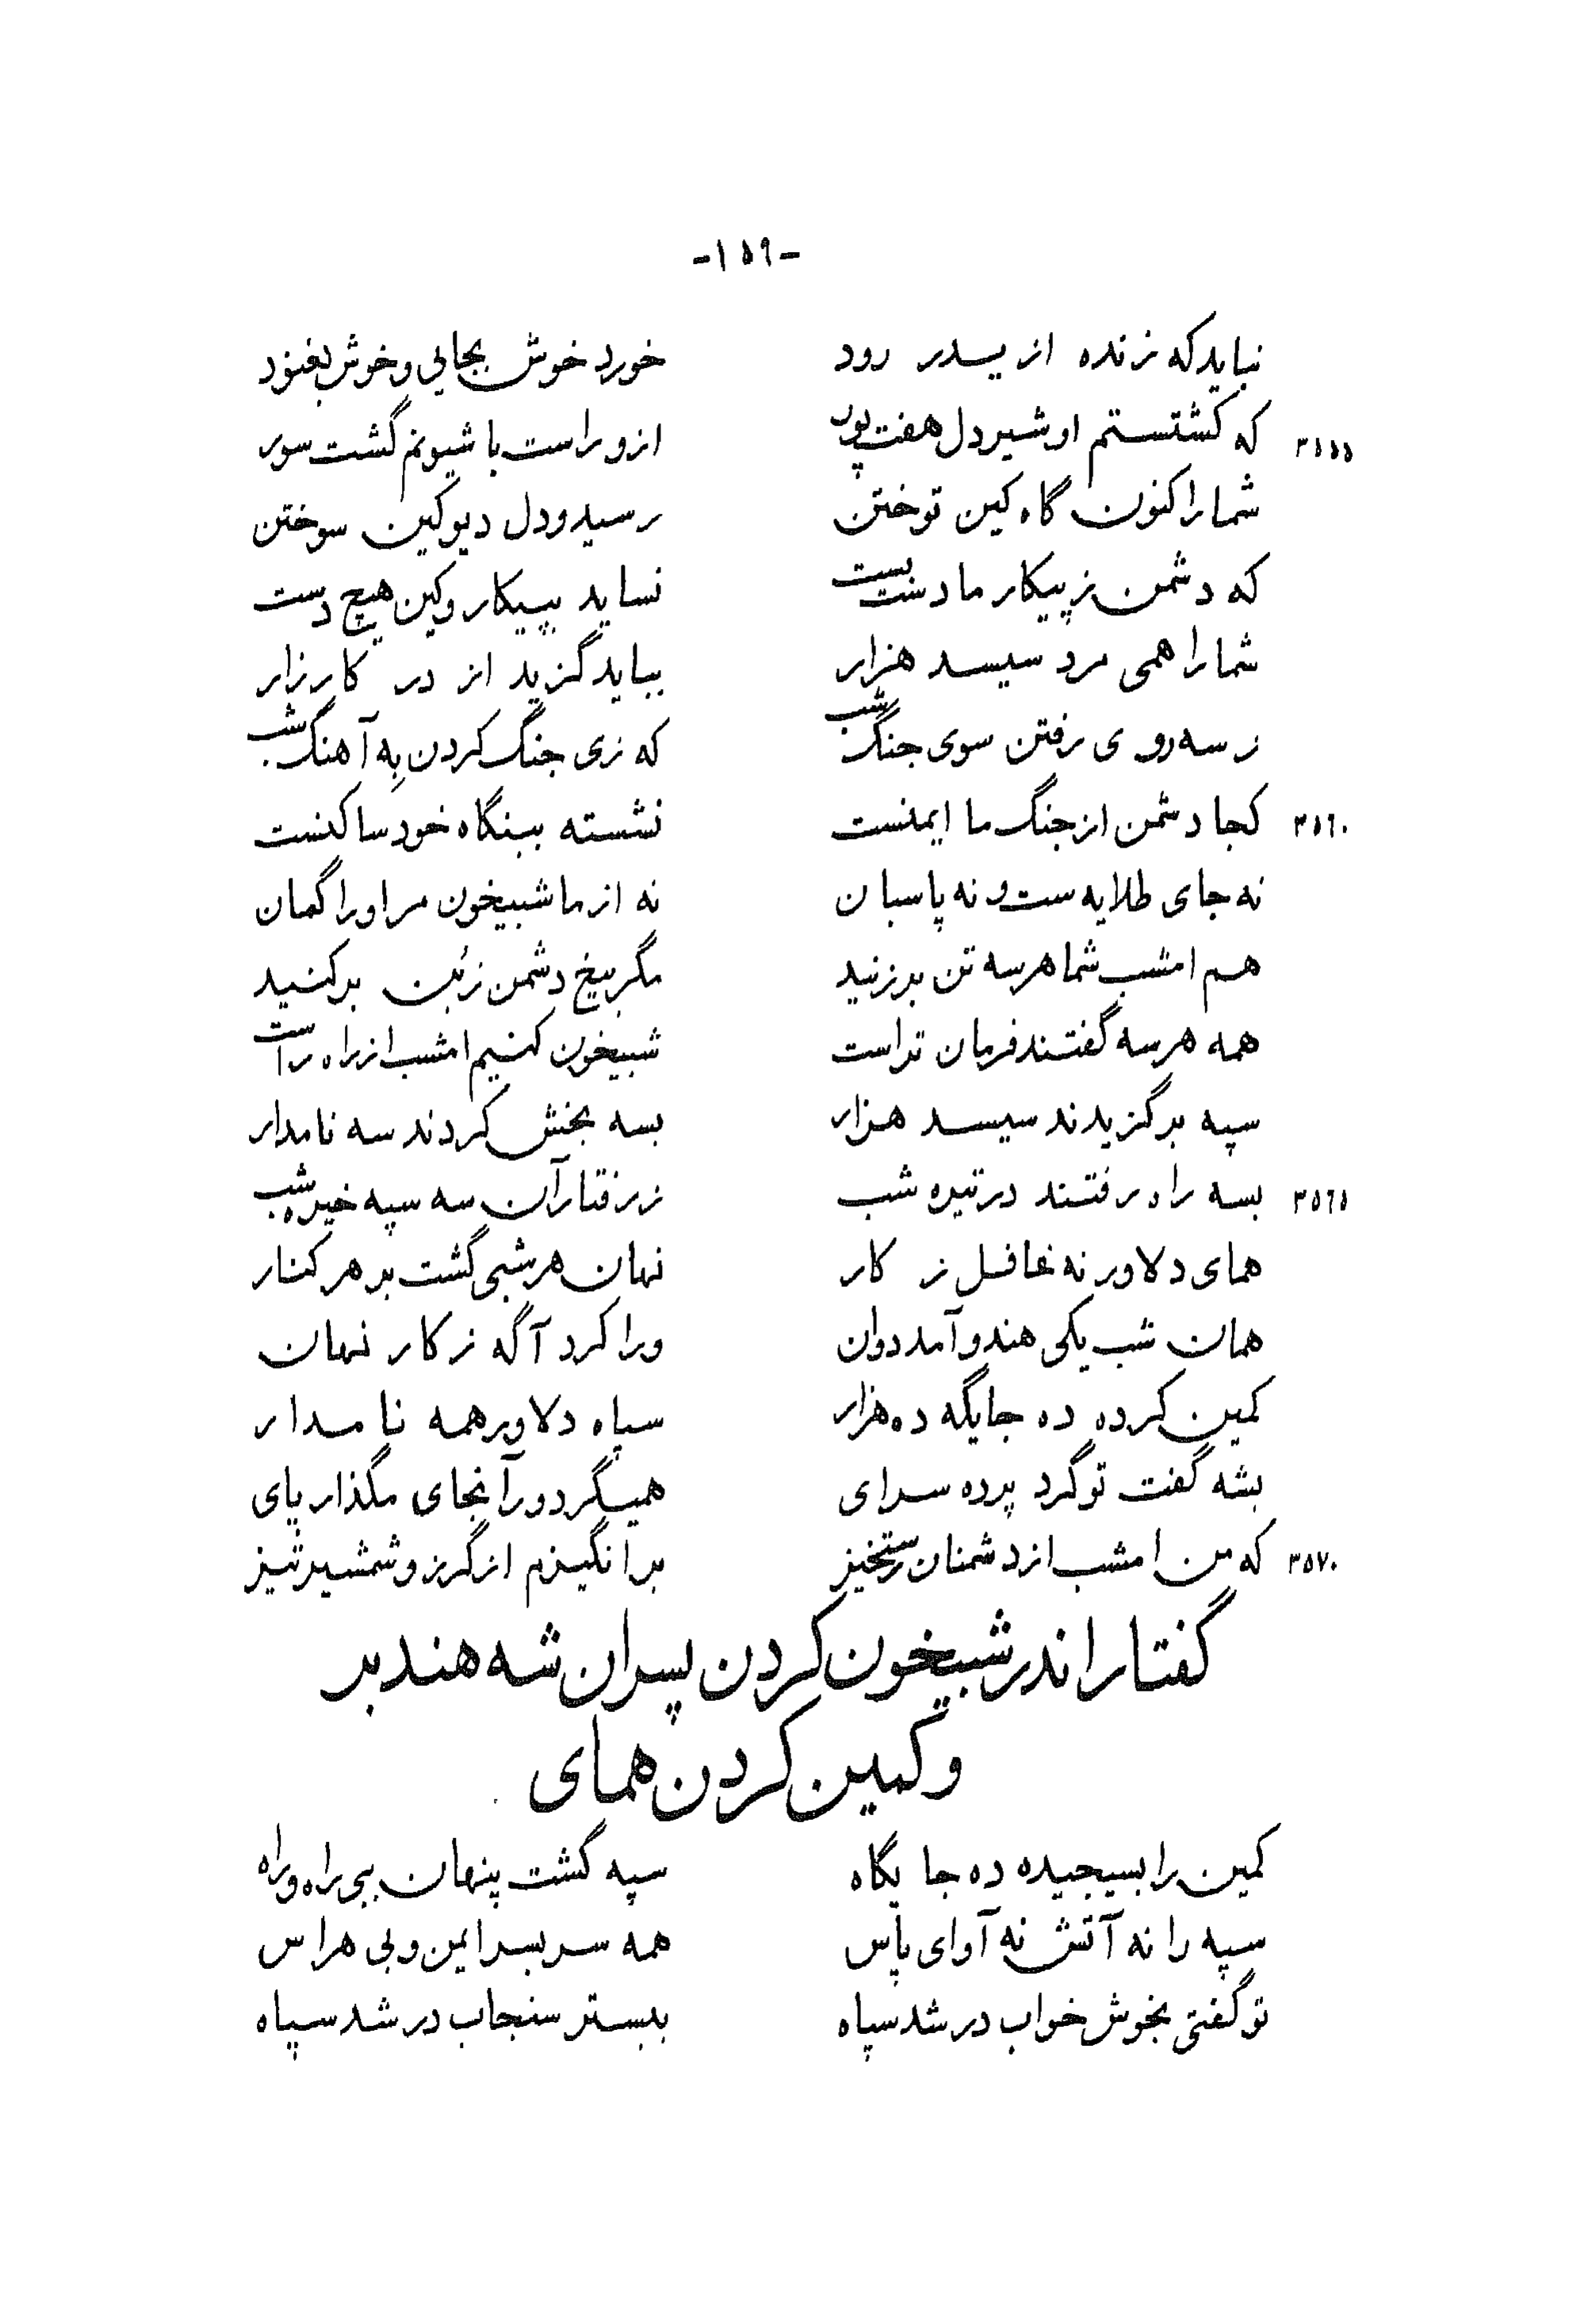 -۱۵۹-
نباید که زنده از یسدر رود خورد خوش بجایی و خوش بغنود
۳۵۵۵ که کشتستم او شیردل هفت پور ازو راست با شیونم گشت سور
شما را کنون گاه کین توختن رسید و دل دیو کین سوختن
که دشمن ز پیکار ما دست بست نساید بپیکار و کین هیچ دست
شما را همی مرد سیسد هزار بباید گزید از در کارزار
ز سه روی رفتن سوی جنگ شب که زی جنگ کردن به آهنگ شب
۳۵۶۰ کجا دشمن از جنگ ما ایمنست نشسته ببنگاه خود ساکنست
نه جای طلایه ست و نه پاسبان نه از ما شبیخون مر او را گمان
هم امشب شما هر سه تن بر زنید مگر بیخ دشمن ز بن برکنید
همه هر سه گفتند فرمان تراست شبیخون کنیم امشب از راه راست
سپه برگزیدند سیسد هزار بسه بخش کردند سه نامدار
۳۵۶۵ بسه راه رفتند در تیره شب ز رفتار آن سه سپه خیره شب
همای دلاور نه غافل ز کار نهان هر شبی گشت بر هر کنار
همان شب یکی هندو آمد دوان ورا کرد آگه ز کار نهان
کمین کرده ده جایگه ده هزار سپاه دلاور همه نامدار
بشه گفت تو گرد پرده سرای همیگرد و رآنجای مگذار پای
۳۵۷۰ که من امشب از دشمنان رستخیز برانگیزم از گرز و شمشیر تیز
گفتار اندر شبیخون کردن پسران شه هند بر
و کمین کردن همای
کمین را بسیجیده ده جایگاه سپه گشت پنهان ببی راه و راه
سپه را نه آتش نه آوای پاس همه سربسر ایمن و بی هراس
تو گفتی بخوش خواب در شد سپاه ببستر سنجاب در شد سپاه